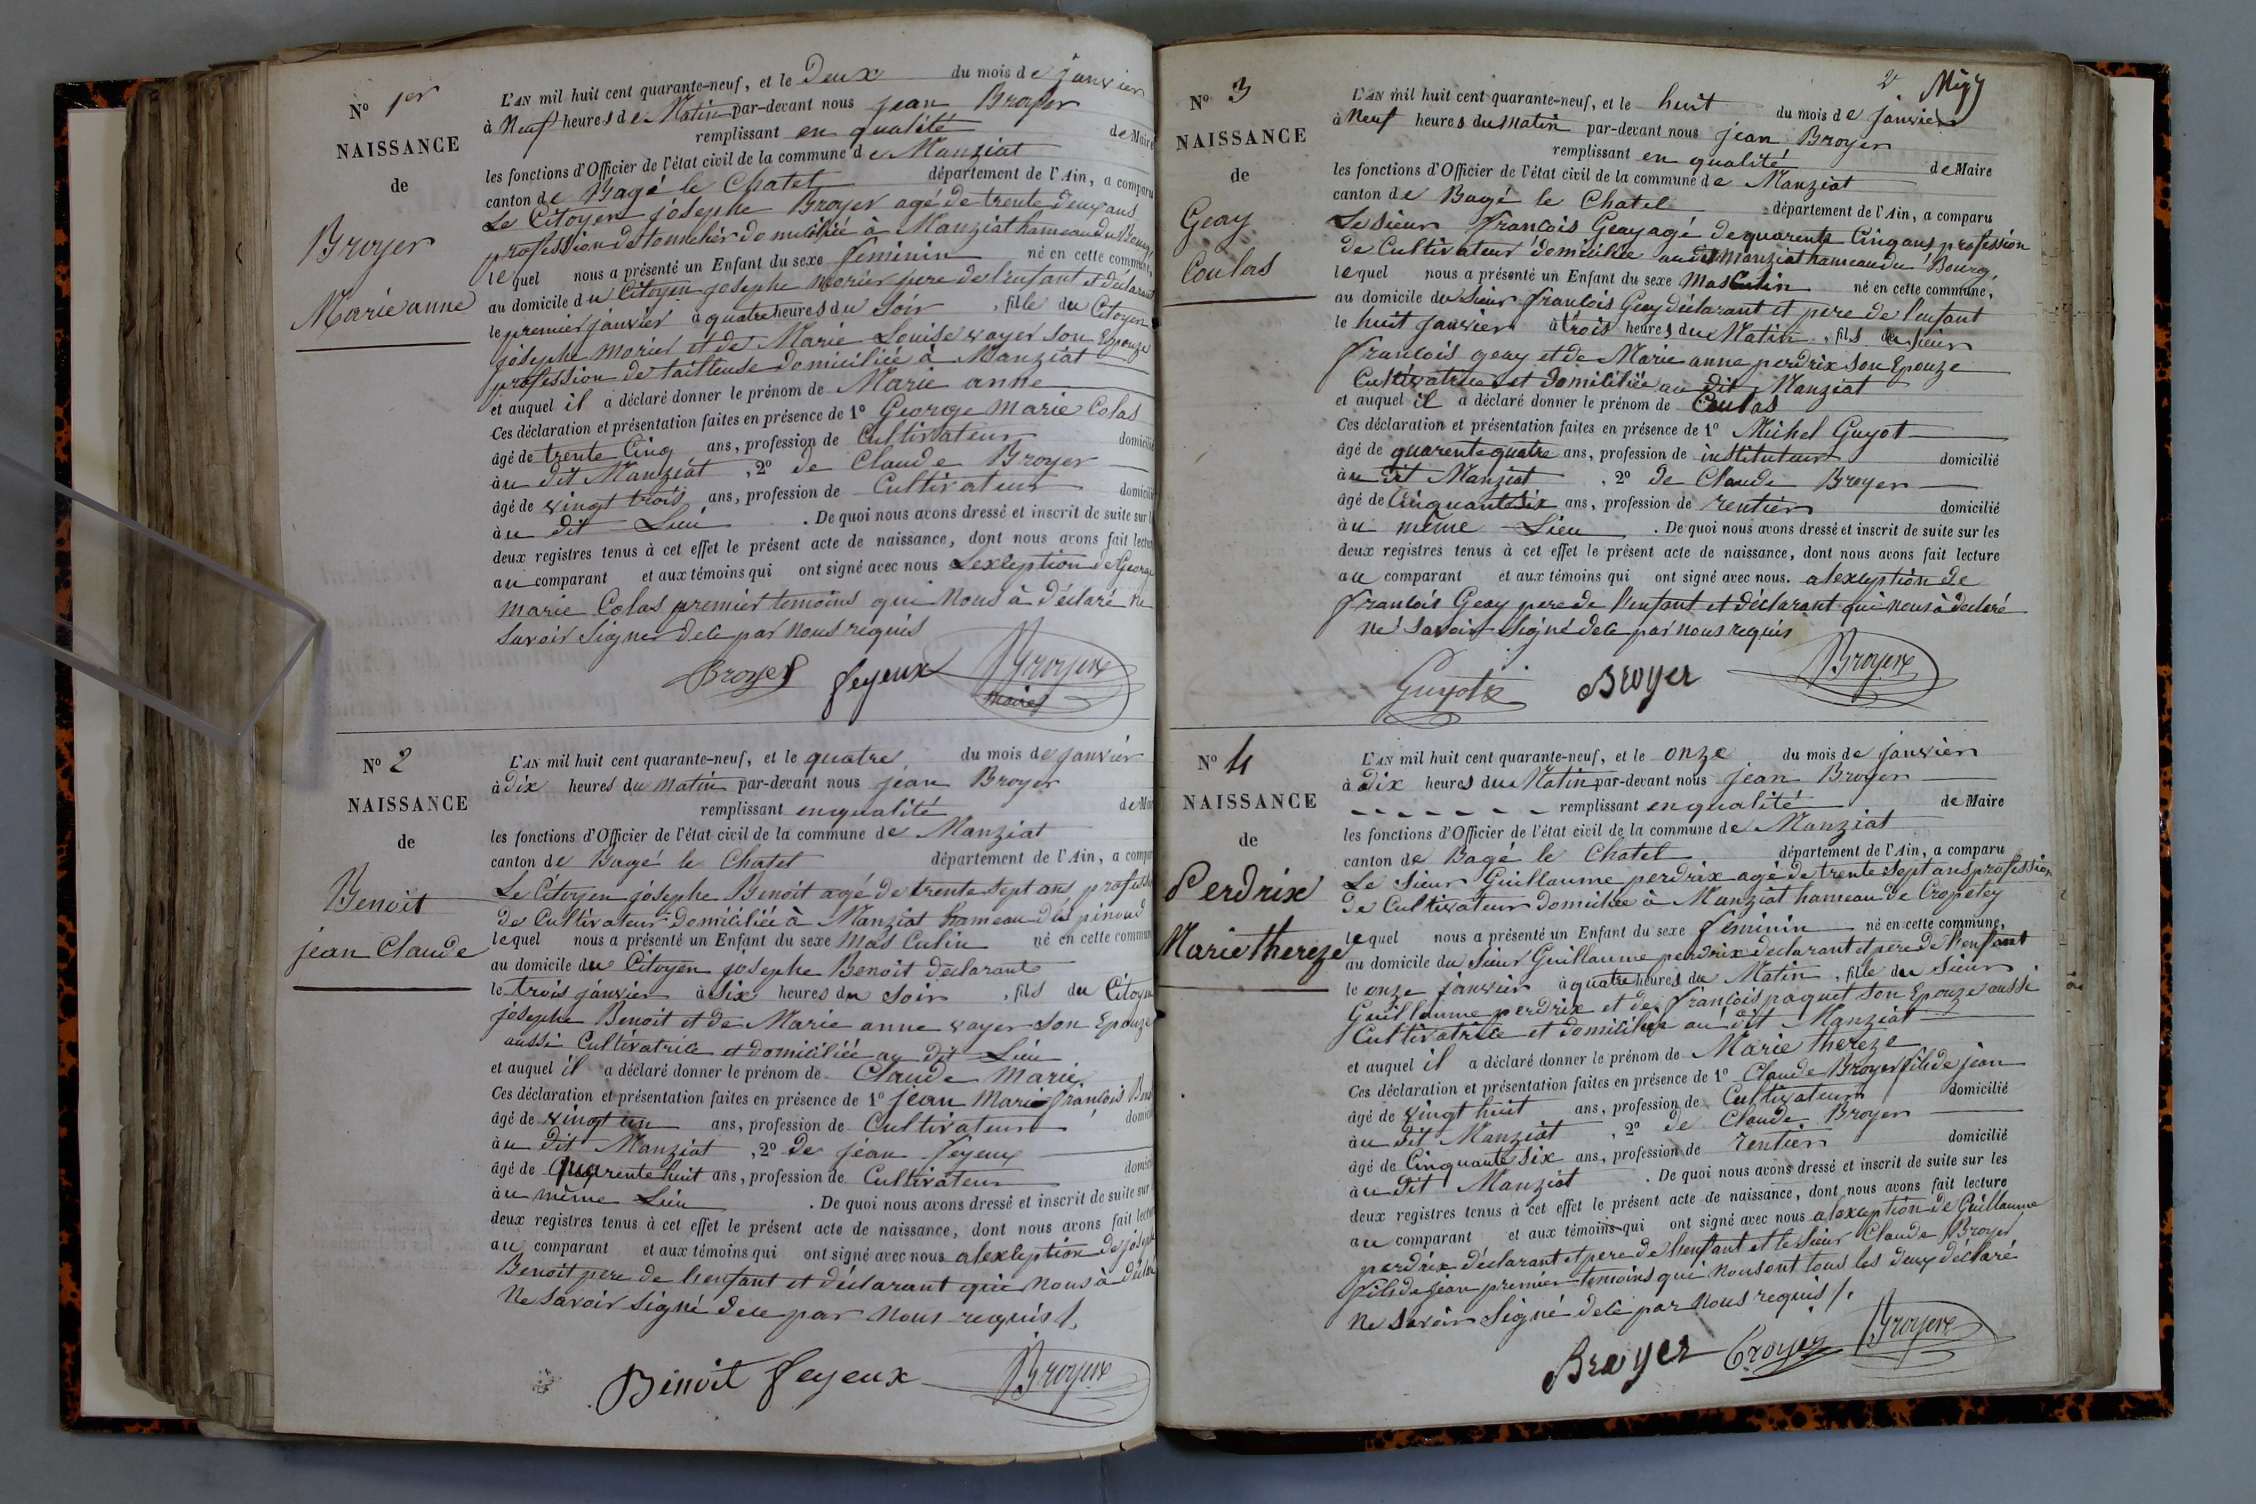 N° 1er
NAISSANCE
de
Broyer
Marie anne
L'AN mil huit cent quarante-neuf, et le Deux du mois de janvier
à Neuf heures de Matin par-devant nous jean Broyer
remplissant en qualité de Maire
les fonctions d'Officier de l'état civil de la commune de Manziat
canton de Bagé le Chatel département de l'Ain, a comparu
Le Citoyen josephe Broyer agé de trente deux ans
profession de tonnelier domiciliée à Manziat hameau du Bourg
lequel nous a présenté un Enfant du sexe feminin né en cette commune,
au domicile du Citoyen josephe morier pere de l'enfant et déclarant
le premier janvier à quatre heures du Soir , fille du Citoyen
josephe morier et de Marie Louise vayer son Epouze
profession de tailleuse domiciliée à Manziat
et auquel il a déclaré donner le prénom de Marie anne
Ces déclaration et présentation faites en présence de 1° George Marie Colas
âgé de trente Cinq ans, profession de Cultivateur domicilié
àu dit Manziat , 2° de Claude Broyer
âgé de vingt trois ans, profession de Cultivateur domicilié
àu dit Lieu . De quoi nous avons dressé et inscrit de suite sur l
deux registres tenus à cet effet le présent acte de naissance, dont nous avons fait lectur
au comparant et aux témoins qui ont signé avec nous Lexception de George
marie Colas premier temoins qui Nous à déclaré ne
savoir signer dele par nous requis
Broyer feyeux Broyer
maire
N° 2
NAISSANCE
de
Benoit
jean Claude
L'AN mil huit cent quarante-neuf, et le quatre du mois de janvier
à dix heures du matin par-devant nous jean Broyer
remplissant en qualité de Mai
les fonctions d'Officier de l'état civil de la commune de Manziat
canton de Bagé le Chatel département de l'Ain, a compar
Le Citoyen josephe Benoit agé de trente sept ans profession
de Cultivateur domiciliée à Manziat hameau des pinoud
lequel nous a présenté un Enfant du sexe masculin né en cette commun
au domicile du Citoyen josephe Benoit déclarant
le trois janvier à six heures du soir , fils du Citoyen
josephe Benoit et de Marie anne vayer son Epouze
aussi Cultivatrice et domiciliée au dit Lieu
et auquel il a déclaré donner le prénom de Claude Marie
Ces déclaration et présentation faites en présence de 1° jean Marie françois Ben
âgé de vingt un ans, profession de Cultivateur domici
àu dit Manziat , 2° de jean feyeux
âgé de quarente huit ans, profession de Cultivateur domici
àu même Lieu . De quoi nous avons dressé et inscrit de suite sur
deux registres tenus à cet effet le présent acte de naissance, dont nous avons fait lectur
au comparant et aux témoins qui ont signé avec nous alexception de joseph
Benoit pere de lenfant et déclarant qui nous à déclar
Ne savoir signé dele par nous requis /.
Benoit feyeux Broyer
2 Migy
N° 3
NAISSANCE
de
Geay
Coulas
L'AN mil huit cent quarante-neuf, et le huit du mois de janvier
à Neuf heures du matin par-devant nous jean Broyer
remplissant en qualité de Maire
les fonctions d'Officier de l'état civil de la commune de Manziat
canton de Bagé le Chatel département de l'Ain, a comparu
Le sieur françois Geay agé de quarente Cinq ans profession
de Cultivateur domiciliée au dit manziat hameau du Bourg,
lequel nous a présenté un Enfant du sexe Masculin né en cette commune,
au domicile du sieur françois Geay déclarant et pere de l'enfant
le huit janvier à trois heures du Matin , fils du sieur
françois geay et de Marie anne perdrix son Epouze
Cultivatrice et domiciliée au dit Manziat
et auquel il a déclaré donner le prénom de Coulas
Ces déclaration et présentation faites en présence de 1° Michel Guyot
âgé de quarente quatre ans, profession de instituteur domicilié
àu dit Manziat , 2° de Claude Broyer
âgé de Cinquante six ans, profession de rentier domicilié
àu même Lieu . De quoi nous avons dressé et inscrit de suite sur les
deux registres tenus à cet effet le présent acte de naissance, dont nous avons fait lecture
au comparant et aux témoins qui ont signé avec nous. alexception de
françois Geay pere de l'enfant et déclarant qui nous à declaré
ne savoir signé dele par nous requis
Guyot Broyer Broyer
N° 4
NAISSANCE
de
Perdrix
Marie thereze
L'AN mil huit cent quarante-neuf, et le onze du mois de janvier
à dix heures du Matin par-devant nous jean Broyer
remplissant en qualité de Maire
les fonctions d'Officier de l'état civil de la commune de Manziat
canton de Bagé le Chatel département de l'Ain, a comparu
Le sieur Guillaume perdrix agé de trente sept ans profession
de Cultivateur domiciliée à Manziat hameau de Cropetey
lequel nous a présenté un Enfant du sexe féminin né en cette commune,
au domicile du sieur Guillaume perdrix declarant et pere de l'enfant
le onze janvier à quatre heures du Matin , fille du sieur
Guillaume perdrix et de françois paquet son Epouze aussi
Cultivatrice et domiciliée au dit Manziat
et auquel il a déclaré donner le prénom de Marie thereze
Ces déclaration et présentation faites en présence de 1° Claude Broyer fils de jean
âgé de vingt huit ans, profession de Cultivateur domicilié
àu dit Manziat , 2° de Claude Broyer
âgé de Cinquante six ans, profession de rentier domicilié
àu dit Manziat . De quoi nous avons dressé et inscrit de suite sur les
deux registres tenus à cet effet le présent acte de naissance, dont nous avons fait lecture
au comparant et aux témoins qui ont signé avec nous alexception de Guillaume
perdrix déclarant et pere de lenfant et le sieur Claude Broyer
fils de jean premier temoins qui nous ont tous les deux déclaré
Ne savoir signé dele par nous requis /.
Broyer Broyer Broyer